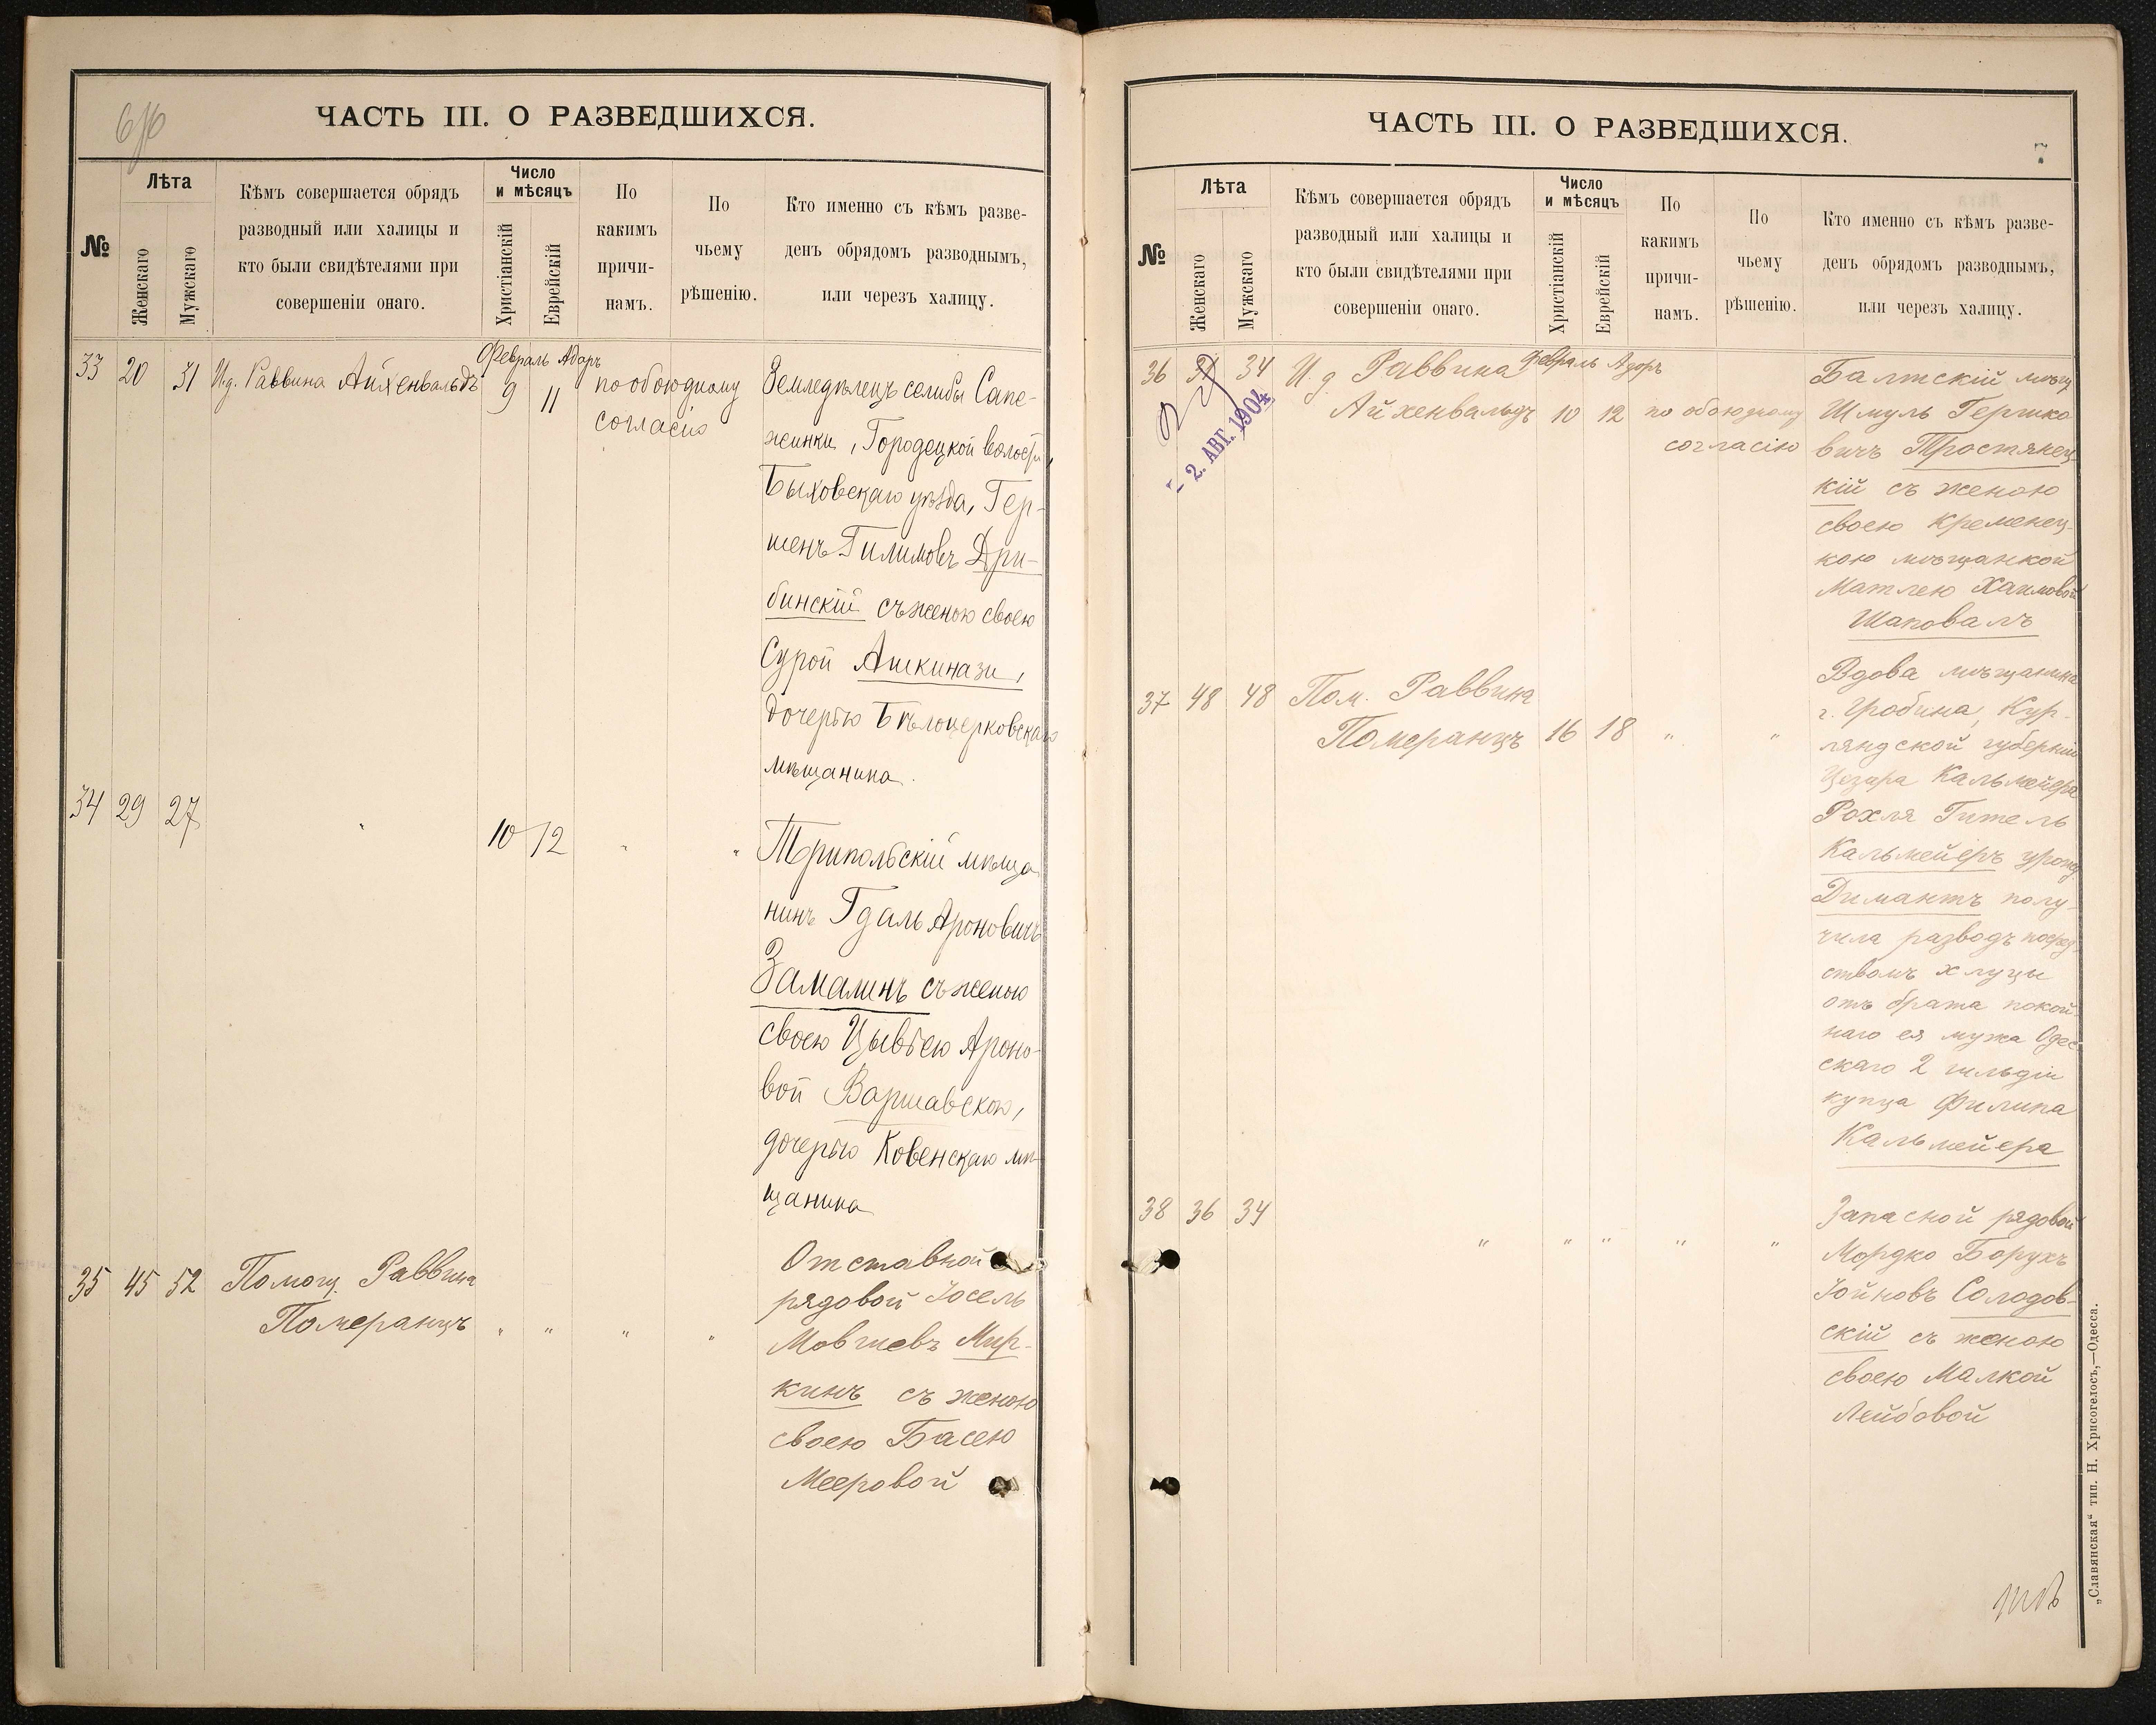 ЧАСТЬ III. О РАЗВЕДШИХСЯ.
№
Лѣта
Женскаго
Мужскаго
Кѣмъ совершается обрядъ
разводный или халицы и
кто были свидѣтелями при
совершеніи онаго.
Число
и мѣсяцъ
Христіанскій
Еврейскій
По
какимъ
причи-
намъ.
По
чьему
рѣшенію.
Кто именно съ кѣмъ разве-
денъ обрядомъ разводнымъ,
или черезъ халицу.
33 20 31 И.д. Раввина Айхенвальдъ
Февраль Адаръ
9 11
по обоюдному
согласію
Земледѣлецъ селибы Сапе-
жинки, Городецкой волости,
Быховскаго уѣзда, Гер-
шенъ Гилимовъ Дри-
бинскій съ женою своею
Сурой Ашкинази,
дочерью Бѣлоцерковскаго
мѣщанина.
34 29 27 " 10 12 " "
Трипольскій мѣща
нинъ Гдаль Ароновичъ
Замалинъ съ женою
своею Цывьею Ароно-
вой Варшавскою,
дочерью Ковенскаго мѣ-
щанина
35 45 52 Помощ. Раввина
Померанцъ " " " "
Отставной
рядовой Іосель
Мовшевъ Мир-
кинъ съ женою
своею Басею
Мееровой
ЧАСТЬ III. О РАЗВЕДШИХСЯ.
7
№
Лѣта
Женскаго
Мужскаго
Кѣмъ совершается обрядъ
разводный или халицы и
кто были свидѣтелями при
совершеніи онаго.
Число
и мѣсяцъ
Христіанскій
Еврейскій
По
какимъ
причи-
намъ.
По
чьему
рѣшенію.
Кто именно съ кѣмъ разве-
денъ обрядомъ разводнымъ,
или черезъ халицу.
36 34 И. д. Раввина
Айхенвальдъ
- 2. АВГ. 1904
Февраль Адаръ
10 12
по обоюдному
согласію
Балтскій мѣщ
Шмуль Гершко
вичъ Тростянец
кій съ женою
своею Кременец-
кою мѣщанкой
Матлею Хаимовой
Шаповалъ
37 48 48 Пом. Раввина
Померанцъ 16 18 " "
Вдова мѣщанина
г. Гробина, Кур-
ляндской губерніи
Цезаря Кальмейера
Рохля Гитель
Кальмейеръ урожд.
Димантъ полу-
чила разводъ посред-
ствомъ хлуцы
отъ брата покой-
наго ея мужа Одес-
скаго 2 гильдіи
купца Филипа
Кальмейера
38 36 34 " " " " "
Запасной рядовой
Мордко Борухъ
Іойновъ Солодов-
скій съ женою
своею Малкой
Лейбовой
„Славянская“ тип. Н. Хрисогелосъ,—Одесса.